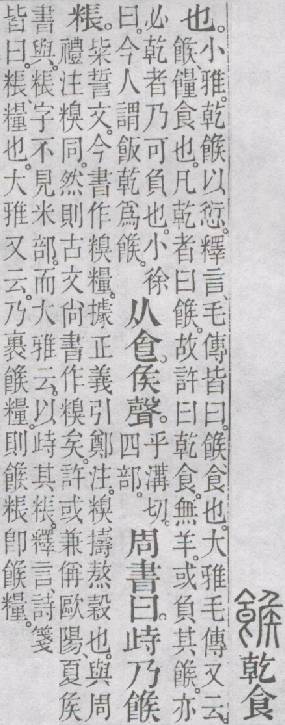 餱乾食
也。小雅。乾餱以愆。釋言、毛傳皆曰。餱、食也。大雅毛傳又云。
餱食也。凡乾者曰餱。故許曰乾食。無羊。或負其餱。亦
必乾者乃可負也。小徐
曰。今人謂飯乾爲餱。
从𠊊矦聲。乎溝切。
四部。
周書曰。峙乃餱
粻。柴誓文。今書作糗糧。據正義引鄭注。糗、擣熬穀也。與周
禮注糗同。然則古文尙書作糗矣。許或兼偁歐陽、夏矦
書與。粻字不見米部。而大雅云。以峙其粻。釋言、詩箋
皆曰。粻、糧也。大雅又云。乃裹餱糧。則餱粻卽餱糧。